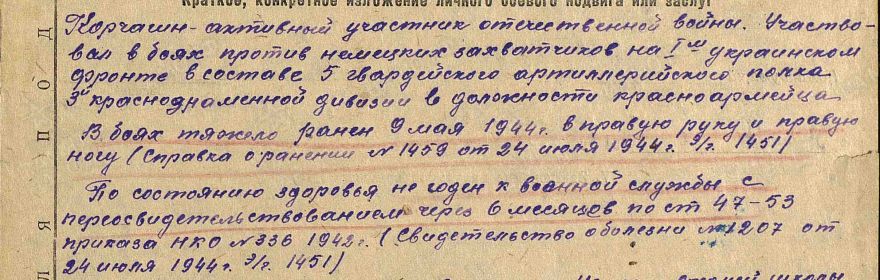 Краткое, конкретное изложение личного боевого подвига или заслуг
Корчагин - активный участник отечественной войны. Участво-
вал в боях против немецких захватчиков на I ом украинском
фронте в составе 5 гвардейского артиллерийского полка
3й краснознаменной дивизии в должности красноармейца
В боях тяжело ранен 9 мая 1944г. в правую руку и правую
ногу (Справка о ранении № 1459 от 24 июля 1944г. э/г. 1451)
По состоянию здоровья не годен к военной службы с
переосвидетельствованием через 6 месяцев по ст 47-53
приказа НКО № 336 1942г. (Свидетельство о болезни № 1207 от
24 июля 1944г. э/г. 1451)
школы
Д
О
П
Я
Л